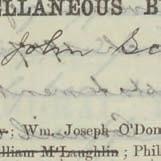 LLANEOUS B
John Sc
; Wm. Joseph O'Don
lliam M'Laughlin ; Phil